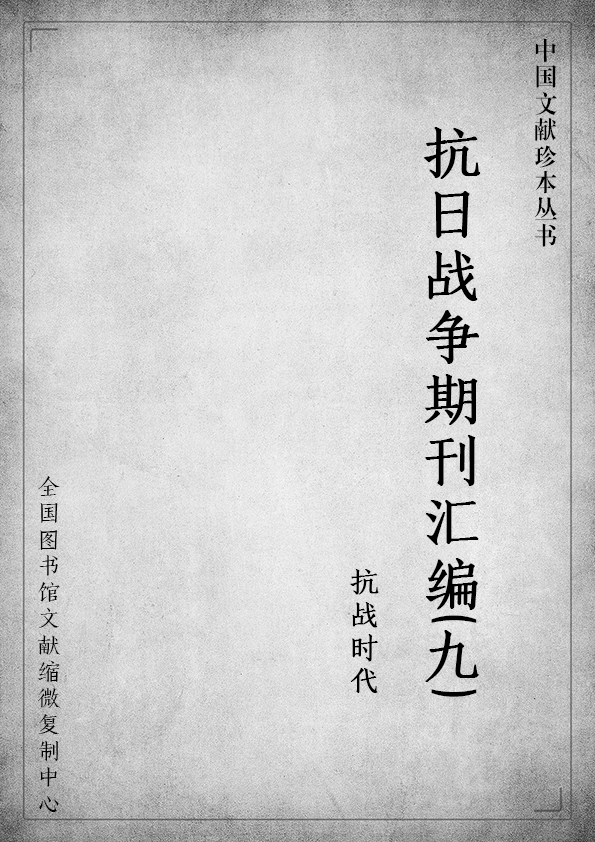 中国文献珍本丛书
抗日战争期刊汇编(九)
抗战时代
全国图书馆文献缩微复制中心